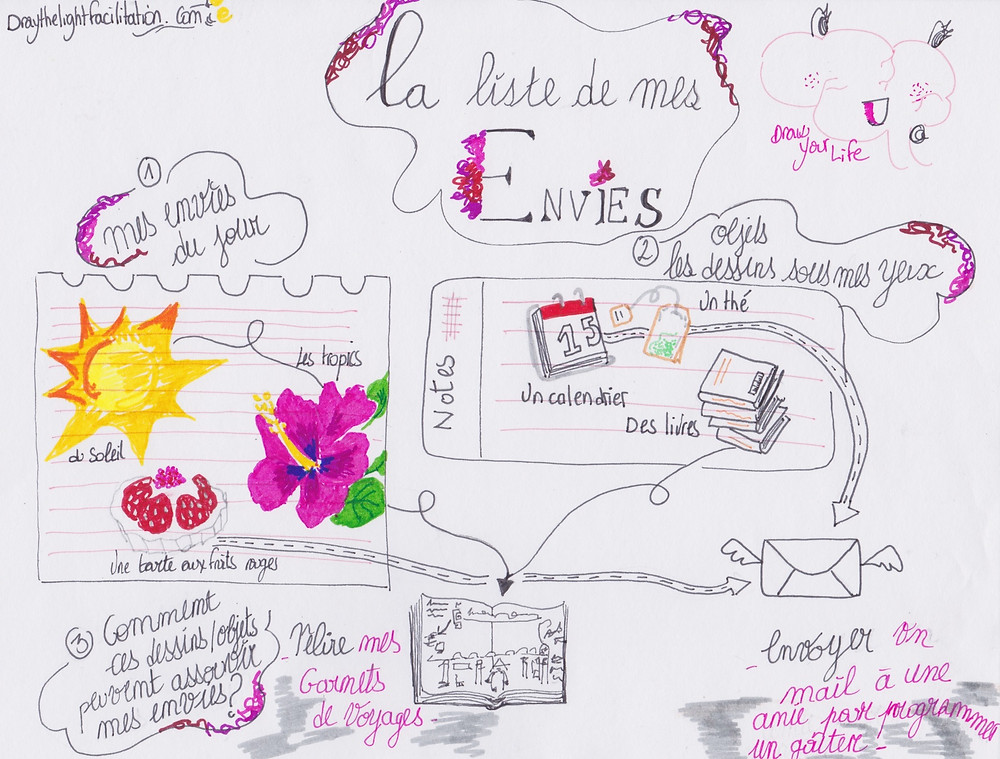 Draythelightfacilitation.com
La liste de mes
Envies
Draw
your
Life
@
1
mes envies
du jour
2
objets
les dessins sous mes yeux
Les tropics
du soleil
Une tarte aux fruits rouges
Notes
15
Un thé
Un calendrier
Des livres
3
Comment
ces dessins/objets
peuvent assouvir
mes envies?
- Relire mes
Carnets
de Voyages -
- Envoyer un
mail à une
amie pour programmer
un goûter -